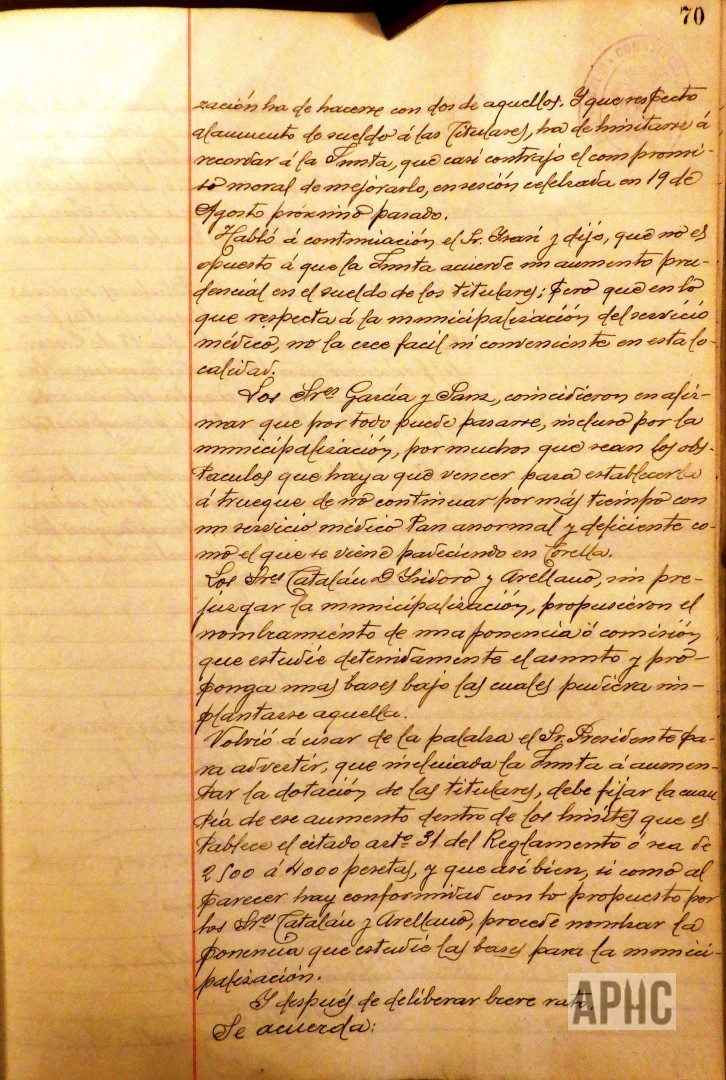 70
zación ha de hacerse con dos de aquellos. Y que respecto
al aumento de sueldo á las Titulares, ha de limitarse á
recordar á la Junta, que casi contrajo el compromi-
so moral de mejorarlo, en sesión celebrada en 19 de
Agosto próximo pasado.
Habló á continuación el Sr. y dijo, que no es
opuesto á que la Junta acuerde un aumento pru-
dencial en el sueldo de los titulares; pero que en lo
que respecta á la municipalización del servicio
médico, no la cree facil ni conveniente en esta lo-
calidad.
Los Sres García y Sanz, coincidieron en afir-
mar que por todo puede pasarse, incluso por la
municipalización, por muchos que sean los obs-
taculos que haya que vencer para establecerla
á trueque de no continuar por más tiempo con
un servicio médico tan anormal y deficiente co-
mo el que se viene padeciendo en Corella.
Los Sres Catalán D Isidoro y Arellano, sin pre-
juzgar la municipalización, propusieron el
nombramiento de una ponencia ó comisión
que estudie detenidamente el asunto y pro-
ponga unas bases bajo las cuales pudiera im-
plantarse aquella.
Volvió á usar de la palabra el Sr. Presidente pa-
ra advertir, que inclinada la Junta á aumen-
tar la dotación de las titulares, debe fijar la cuan
tía de ese aumento dentro de los limites que es
tablece el citado arto 31 del Reglamento ó sea de
2500 á 4000 pesetas, y que así bien, si como al
parecer hay conformidad con lo propuesto por
los Sres Catalán y Arellano, procede nombrar la
ponencia que estudie las bases para la munici-
palización.
Y después de deliberar breve rato,
Se acuerda:
APHC